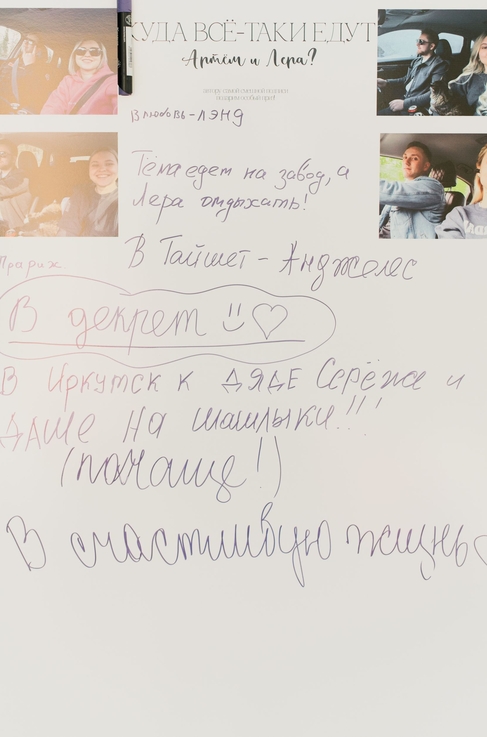 КУДА ВСЁ-ТАКИ ЕДУТ
Артём и Лера?
В любовь-лэнд
Тёма едет на завод, а
Лера отдыхать!
В Тайшет - Анджелес
Париж
В декрет
В Иркутск к дяде Серёже и
Даше на шашлыки!!!
(почаще!)
В счастливую жизнь